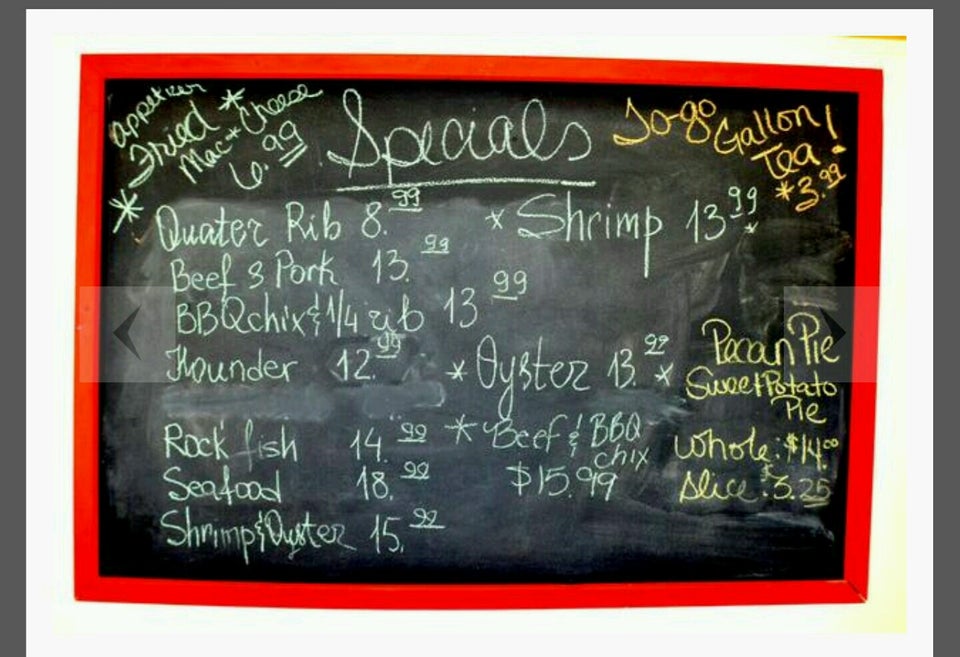 appetizer
Fried * Cheese
Mac +
6.99
*
Specials
To-go
Gallon!
Tea
*3.99
Quater Rib 8.99 * Shrimp 13.99
Beef & Pork 13.99
BBQ chix & 1/4 rib 13.99
Flounder 12.99 * Oyster 13.99 *
Rock fish 14.99 * Beef & BBQ
chix
$15.99
Seafood 18.99
Shrimp & Oyster 15.99
Pecan Pie
Sweet Potato
Pie
Whole: $14.00
Slice: $3.25